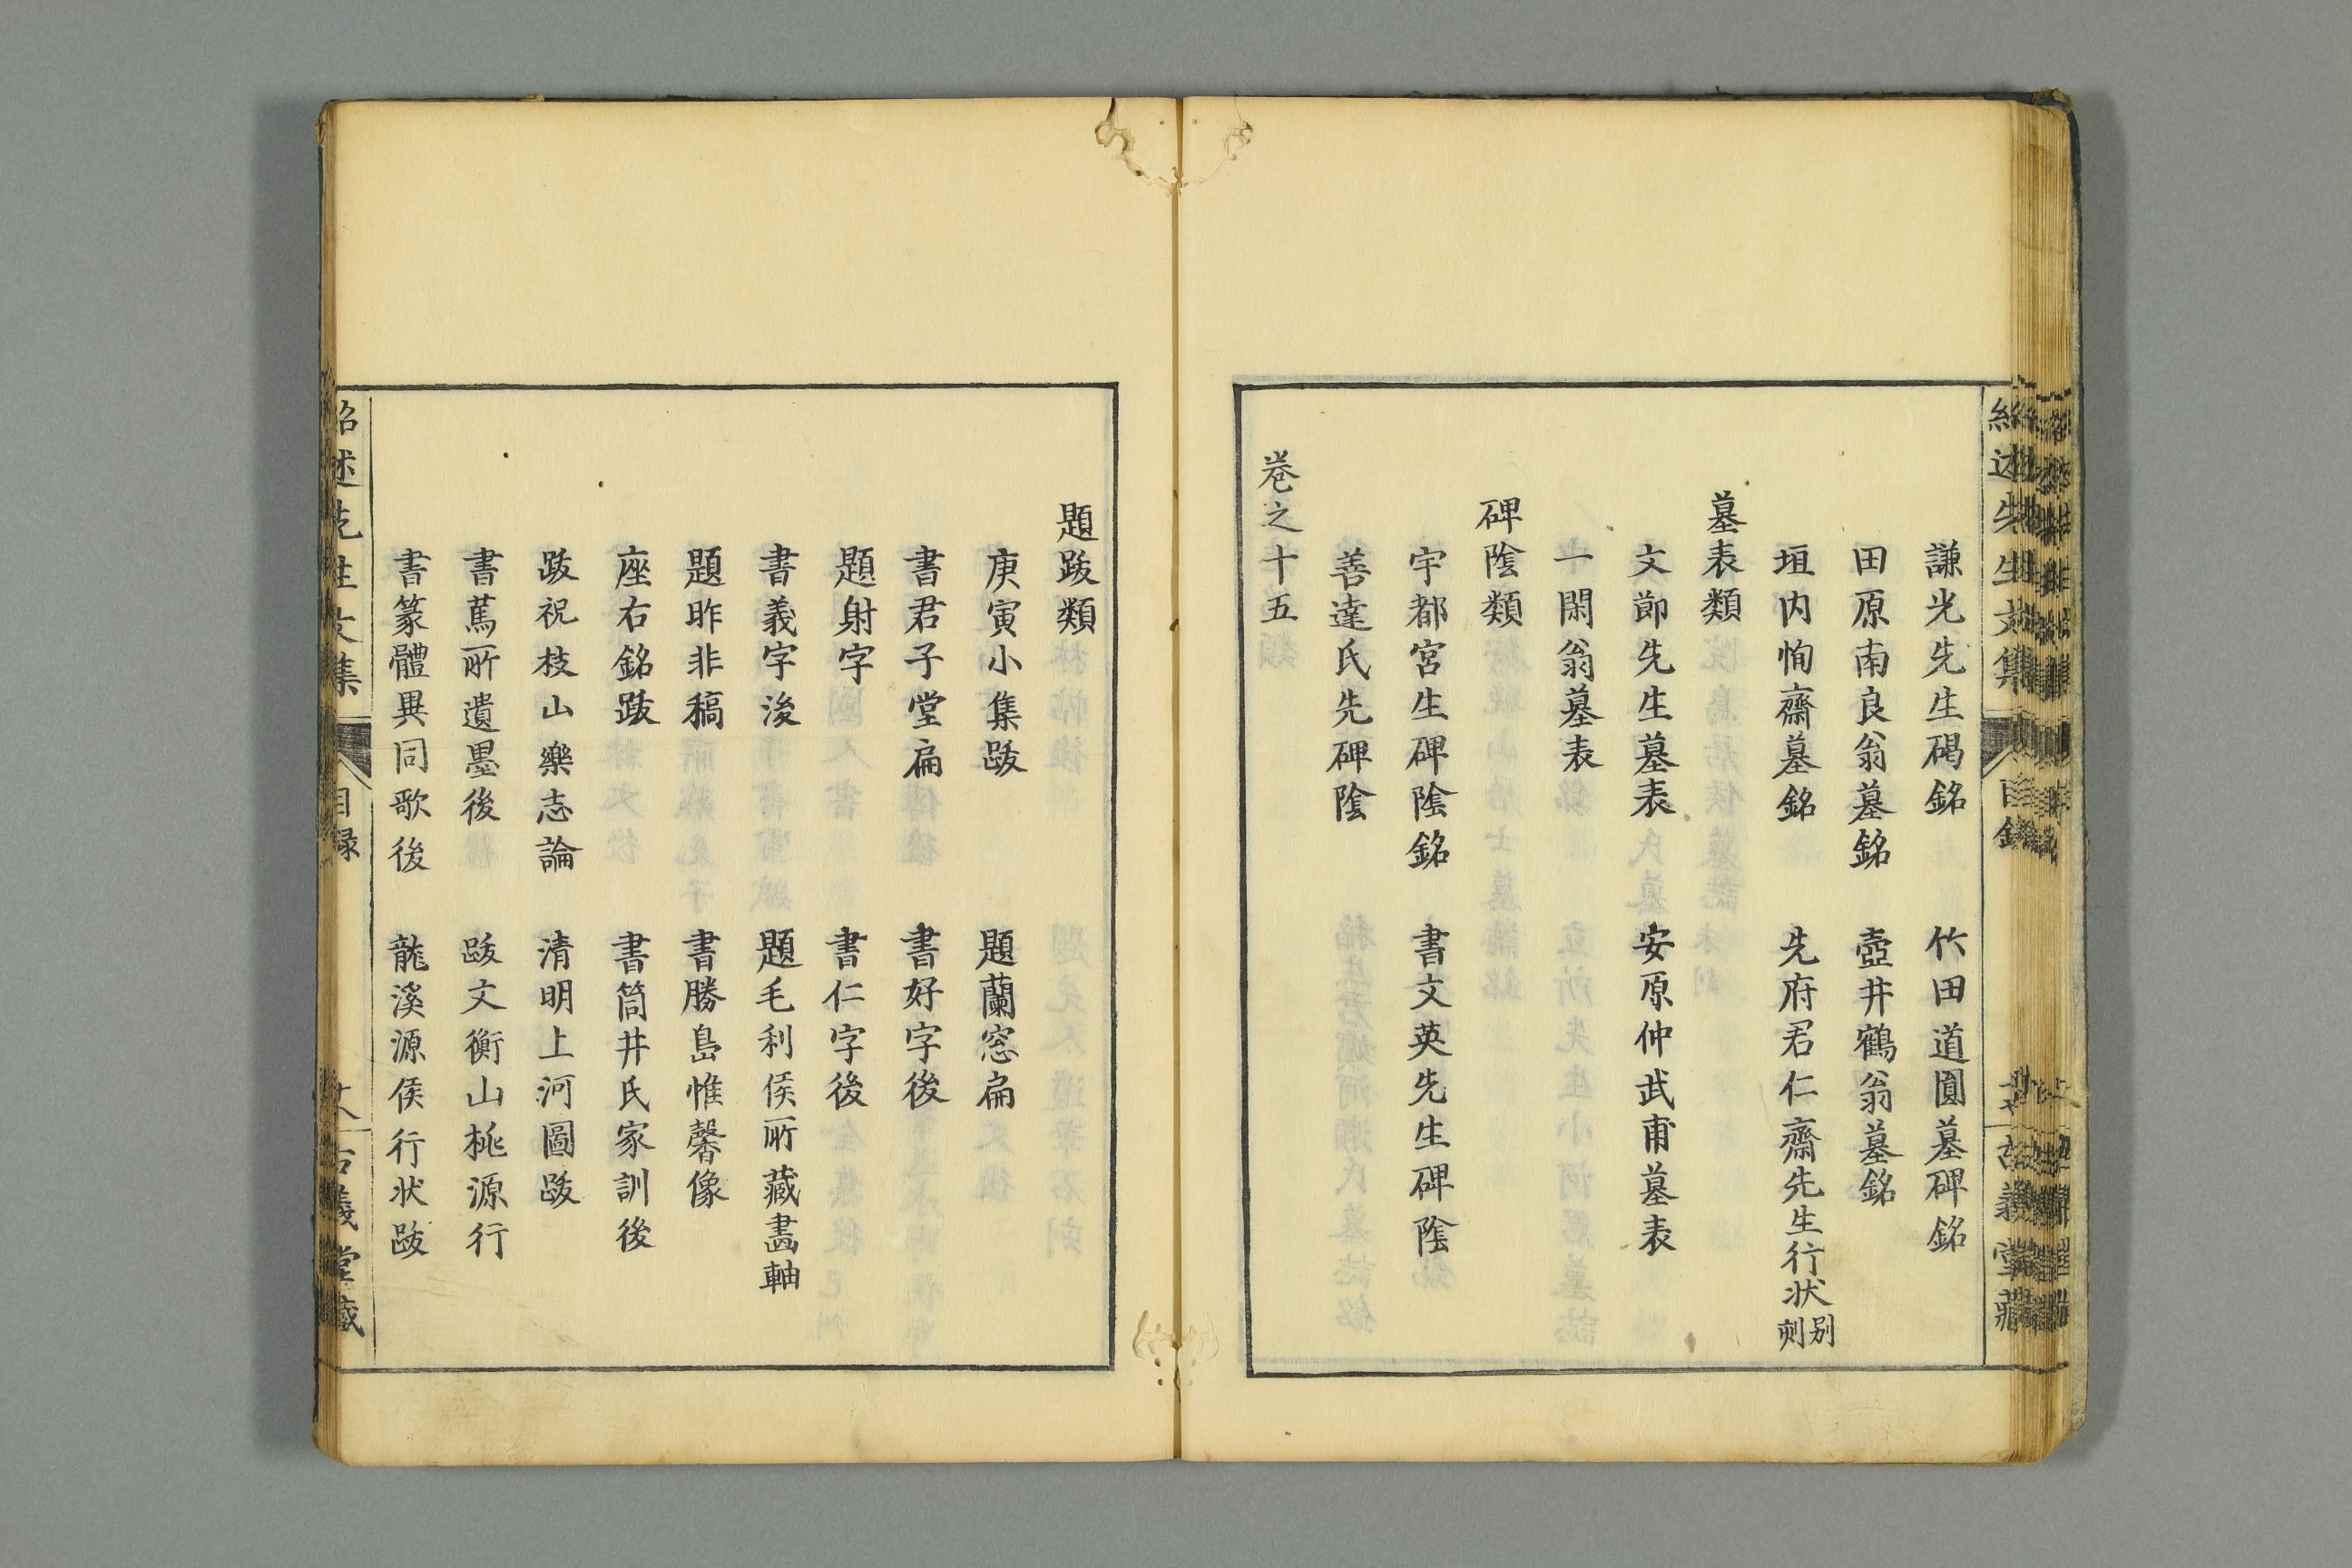 謙光先生碣銘　竹田道圓墓碑銘
田原南良翁墓銘　壺井鶴翁墓銘
垣内恂齋墓銘　先府君仁齋先生行状別刻
墓表類
文節先生墓表　安原仲武甫墓表
一閑翁墓表
碑陰類
宇都宮生碑陰銘　書文英先生碑陰
善達氏先碑陰
卷之十五
題跋類
庚寅小集跋　題蘭窓扁
書君子堂扁　書好字後
題射字　書仁字後
書義字後　題毛利侯所藏畫軸
題昨非稿　書勝島惟馨像
座右銘跋　書筒井氏家訓後
跋祝枝山樂志論　清明上河圖跋
書蔿所遺墨後　跋文衡山桃源行
書篆體異同歌後　龍溪源侯行状跋
紹述先生文集　目録　古義堂藏